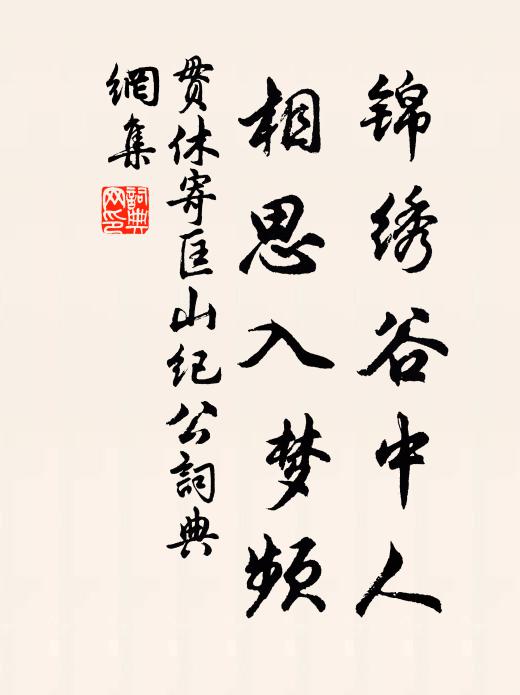 锦绣谷中人
相思入梦频
贯休寄匡山纪公詞典
網集
詞典网印